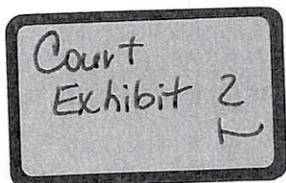 Court
Exhibit 2